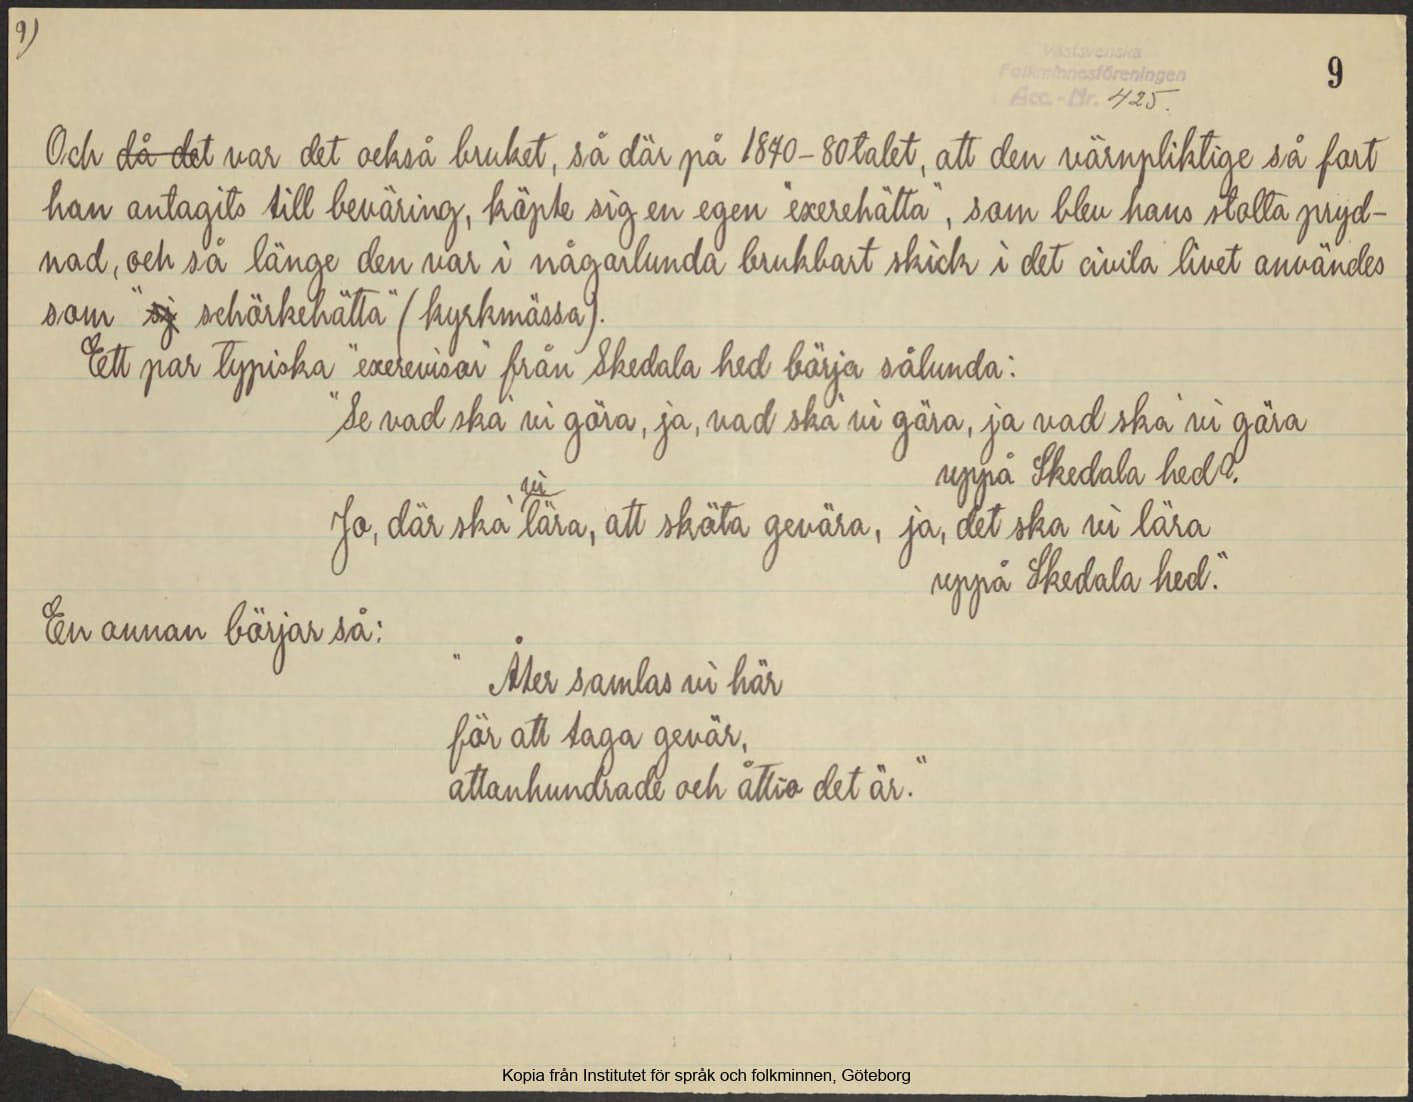 9)
Västsvenska
Folkminnesföreningen
Acc.-Nr. 425.
9
Och då det var det också bruket, så där på 1840-80talet, att den värnpliktige så fort
han antagits till beväring, köpte sig en egen "exerehätta", som blev hans stolta pryd-
nad, och så länge den var i någorlunda brukbart skick i det civila livet användes
som "sj schörkehätta" (kyrkmössa).
Ett par typiska "exerevisor" från Skedala hed börja sålunda:
"Se vad ska' vi göra, ja, vad ska' vi göra, ja vad ska' vi göra
uppå Skedala hed?.
Jo, där ska' vi lära, att sköta gevära, ja, det ska vi lära
uppå Skedala hed."
En annan börjar så:
" Åter samlas vi här
för att taga gevär,
attanhundrade och åttio det är."
Kopia från Institutet för språk och folkminnen, Göteborg